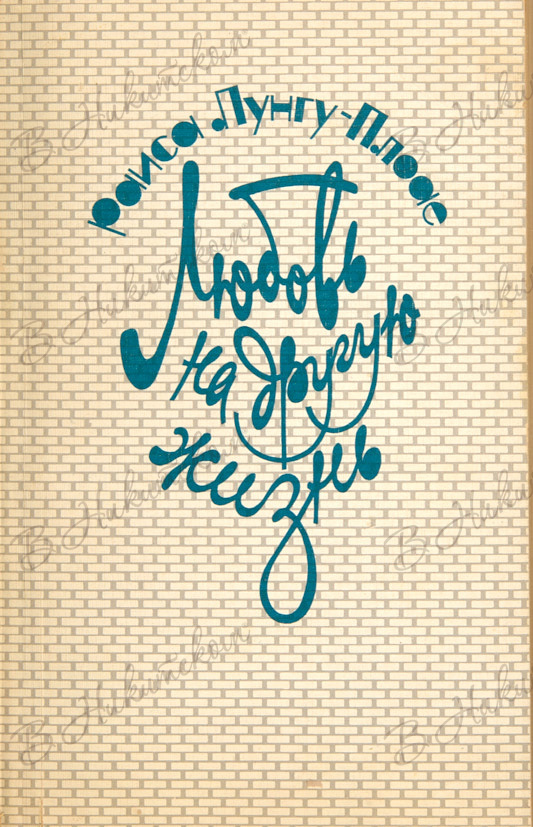 раиса Лунгу-Плоае
Любовь
на другую
жизнь
В Никитском
В Никитском
В Никитском
В Никитском
В Никитском
В Никитском
В Никитском
В Никитском